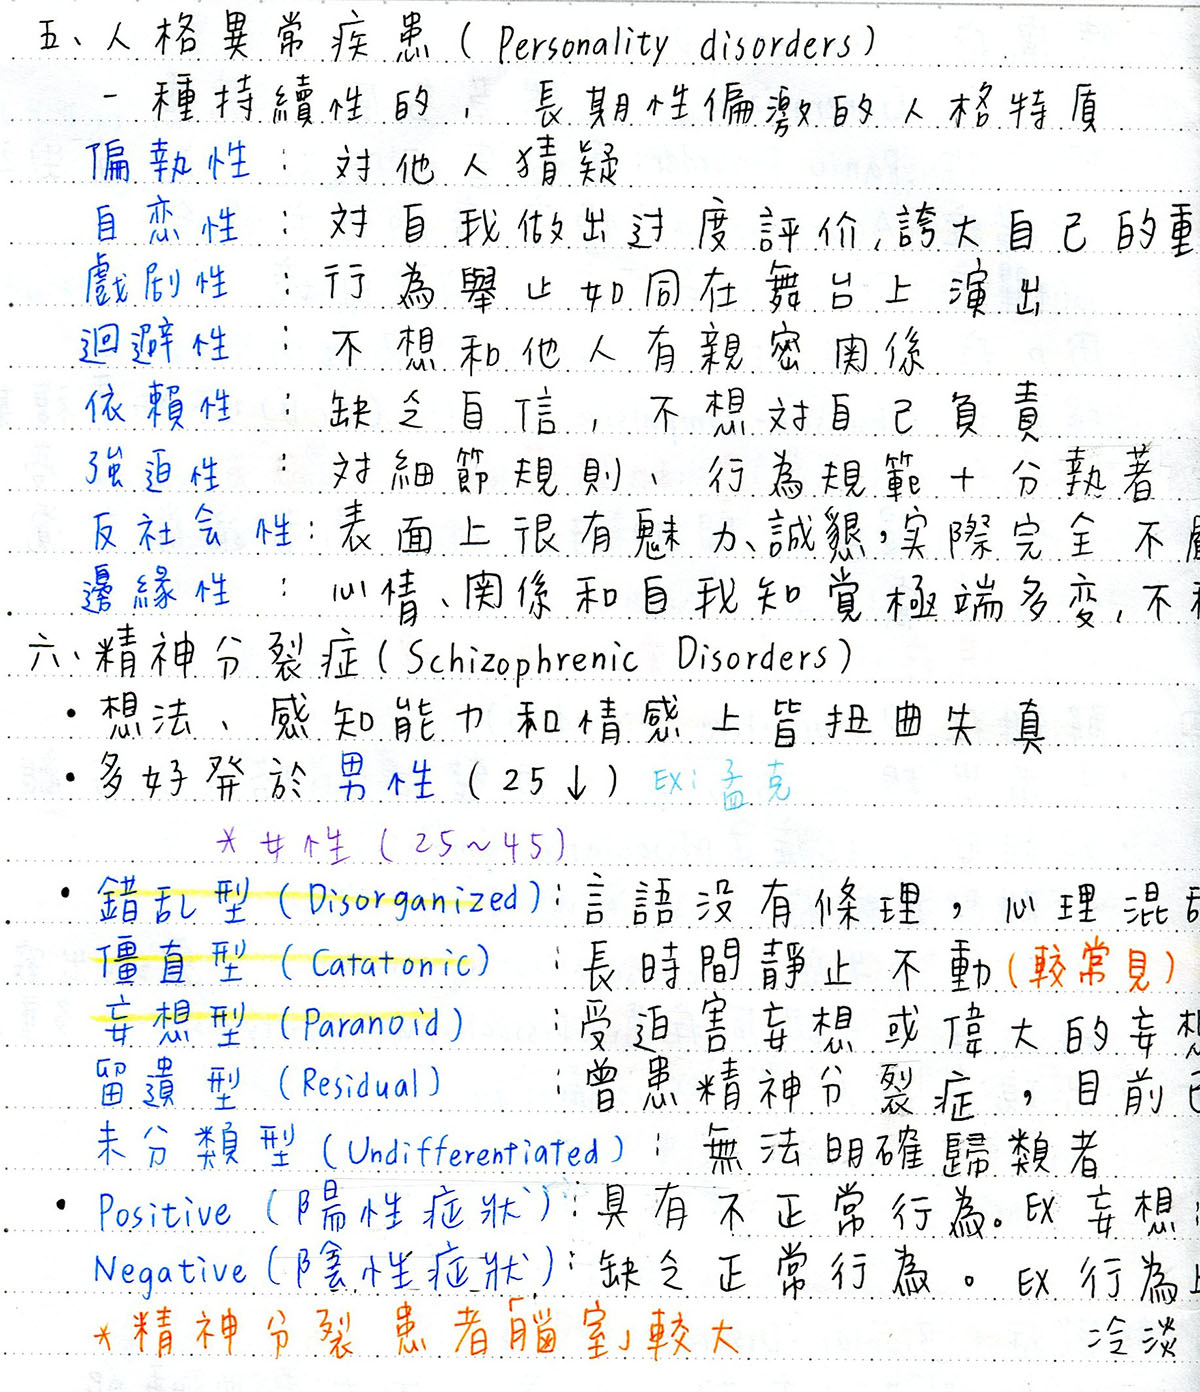 五、人格異常疾患(Personality disorders)
一種持續性的,長期性偏激的人格特質
偏執性:対他人猜疑
自恋性:対自我做出过度評价,誇大自己的重
戲剧性:行為舉止如同在舞台上演出
迴避性:不想和他人有親密関係
依賴性:缺乏自信,不想対自己負責
強迫性:対細節規則、行為規範十分執著
反社会性:表面上很有魅力、誠懇,实際完全不
邊緣性:心情、関係和自我知覚極端多変,不
六、精神分裂症(Schizophrenic Disorders)
・想法、感知能力和情感上皆扭曲失真
・多好発於男性(25↓) EX:孟克
*女性(25~45)
・錯乱型(Disorganized):言語没有條理,心理混乱
僵直型(Catatonic):長時間靜止不動(較常見)
妄想型(Paranoid):受迫害妄想或偉大的妄想
留遺型(Residual):曾患精神分裂症,目前已
未分類型(Undifferentiated):無法明確歸類者
・Positive(陽性症狀):具有不正常行為。EX 妄想
Negative(陰性症狀):缺乏正常行為。EX 行為上
冷淡
*精神分裂患者「腦室」較大